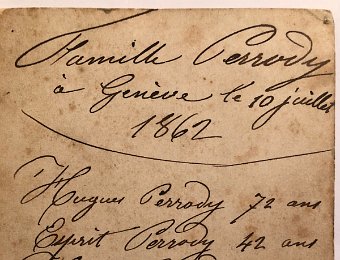 Famille Perrody
à Genève le 10 juillet
1862
Hugues Perrody 72 ans
Esprit Perrody 42 ans